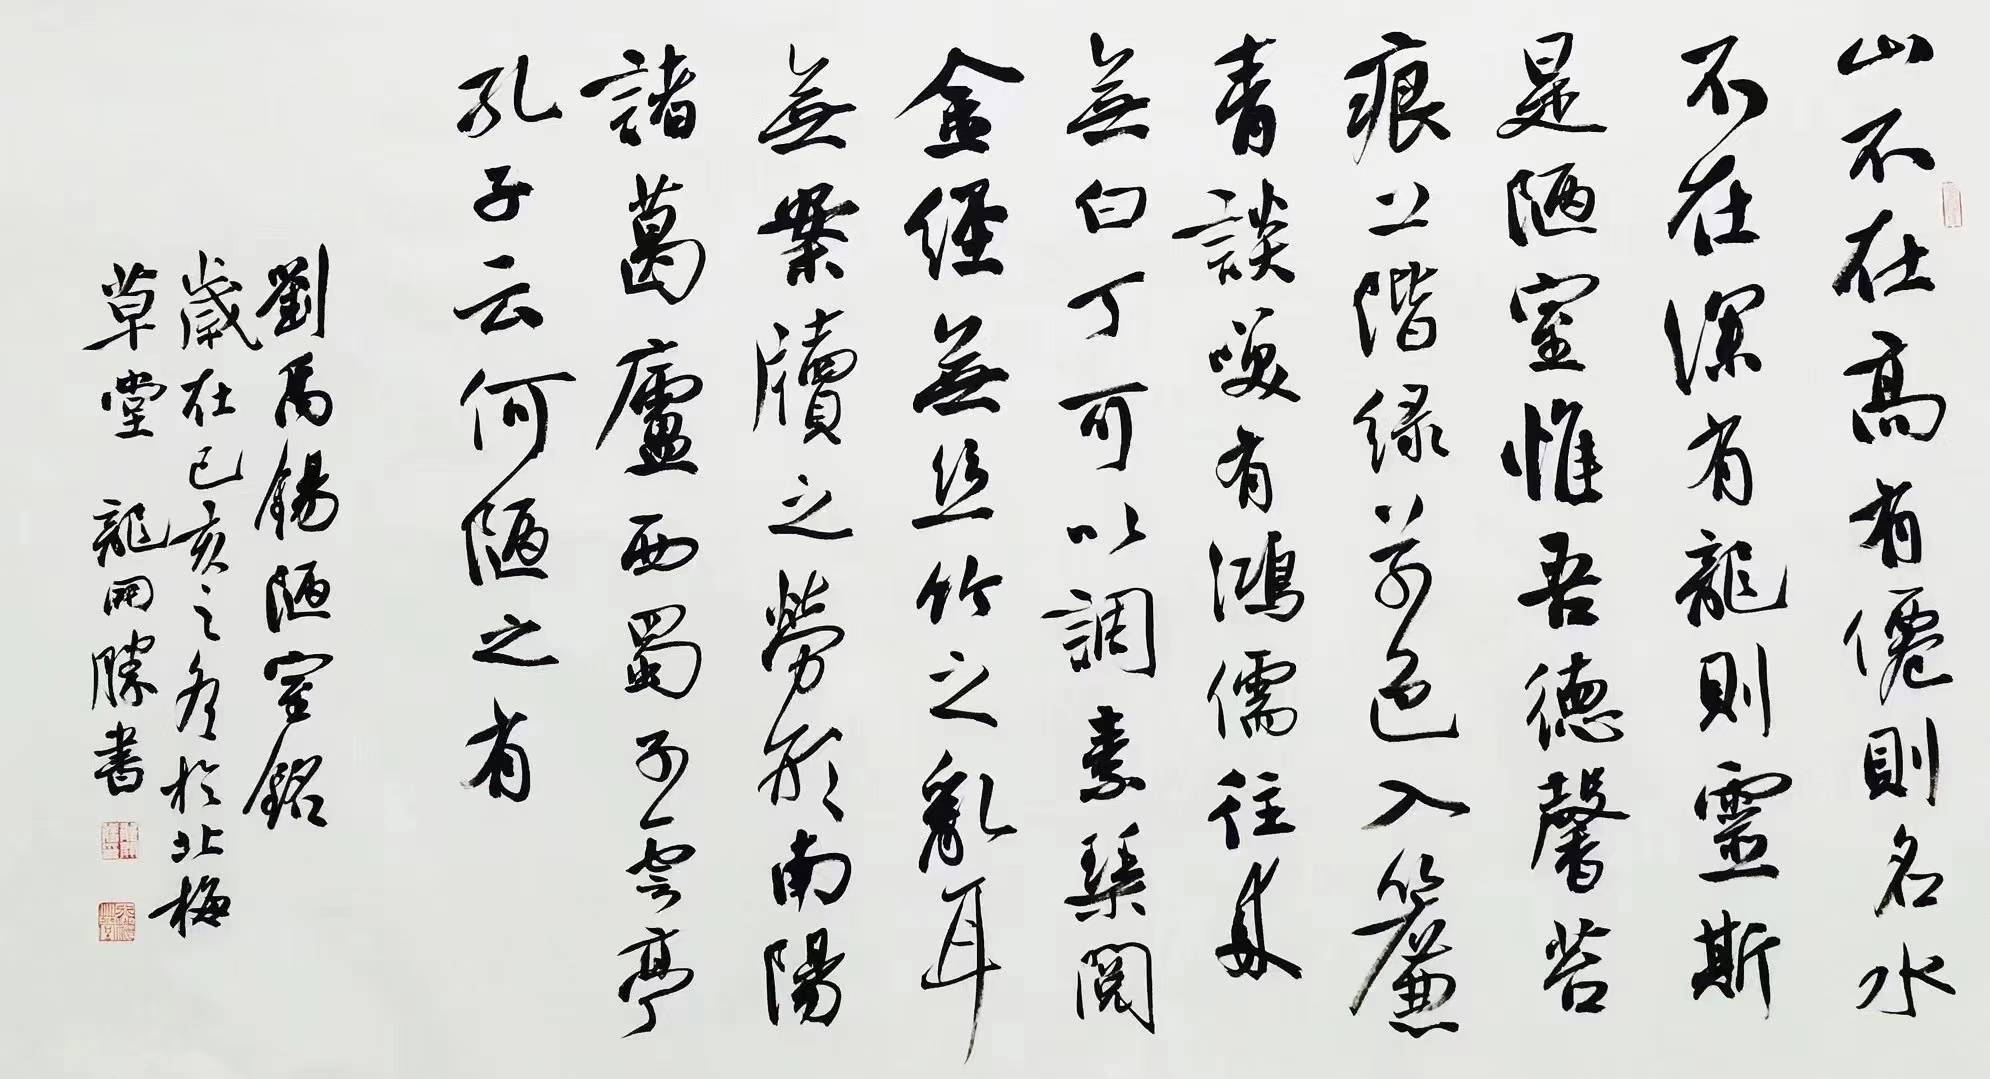 山不在高有僊則名水
不在深有龍則靈斯
是陋室惟吾德馨苔
痕上階绿草色入簾
青談笑有鴻儒往来
無白丁可以調素琴閲
金經無丝竹之亂耳
無案牘之勞形南陽
諸葛廬西蜀子雲亭
孔子云何陋之有
劉禹錫陋室銘
歲在己亥之冬於北梅
草堂 龍開勝書